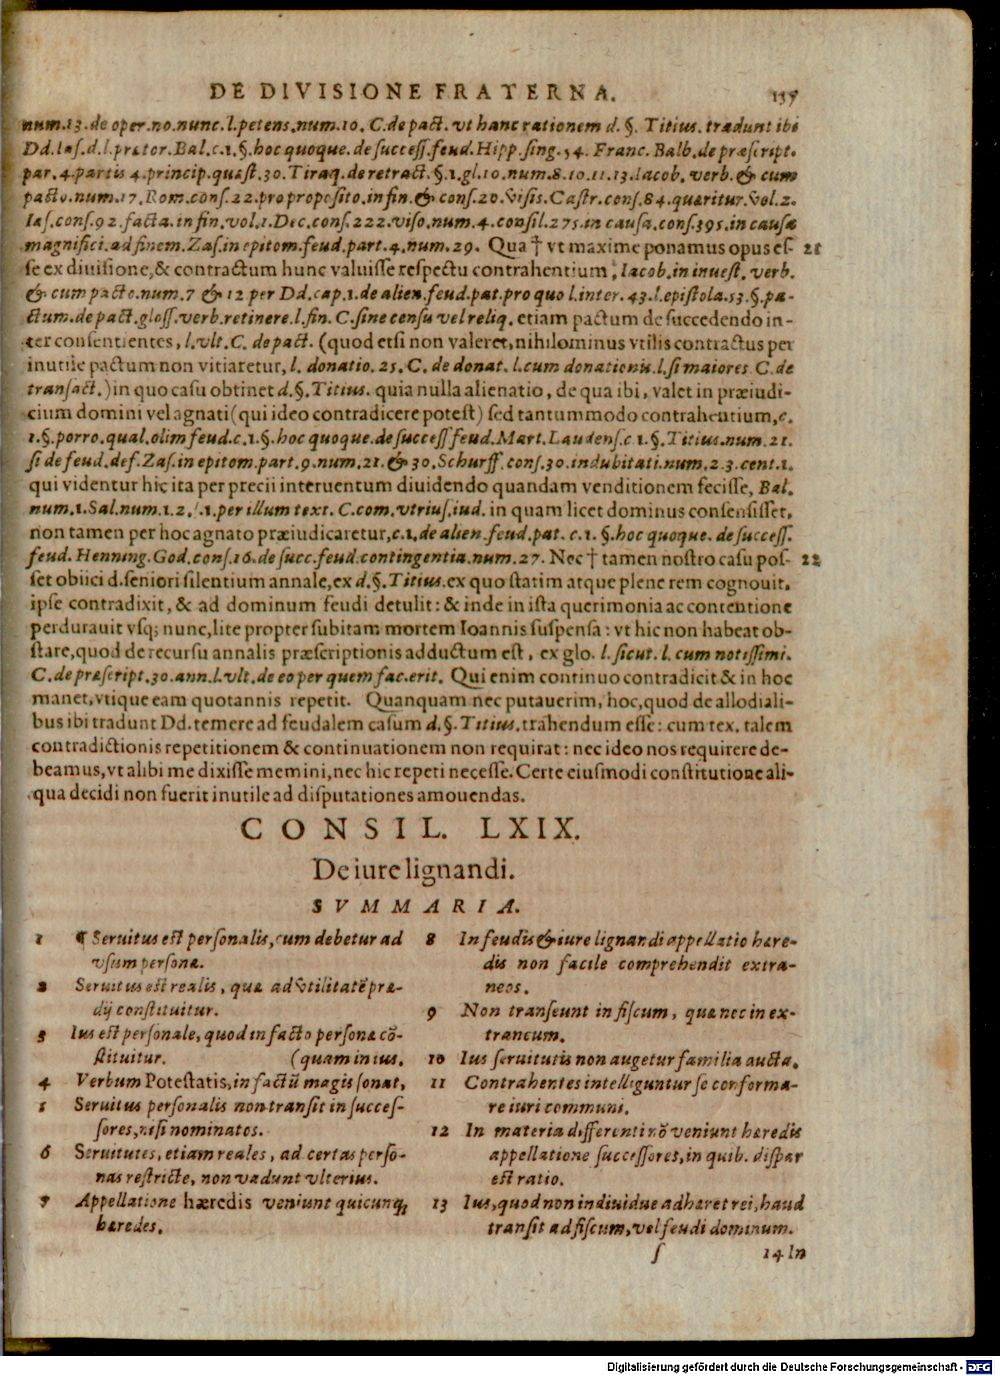 DE DIVISIONE FRATERNA. 137
num.13.de oper.no.nunc.l.petens.num.10. C.de pact. vt hanc rationem d. §. Titius. tradunt ibi
Dd.Ias.d.l.prætor.Bal.c.1.§.hoc quoque.de success.feud.Hipp.sing.54. Franc. Balb.de præscript.
par.4.partis 4.princip.quæst.30.Tiraq.de retract.§.1.gl.10.num.8.10.11.13.Iacob. verb. & cum
pacto.num.17.Rom.cons.22.pro proposito.in fin.& cons.20.visis.Castr.cons.84.quæritur.vol.2.
Ias.cons.92.facta.in fin.vol.1.Dec.cons.222.viso.num.4.consil.275.in causa.cons.395.in causa
magnifici.ad finem.Zas.in epitom.feud.part.4.num.29. Qua † vt maxime ponamus opus es- 21
se ex diuisione,& contractum hunc valuisse respectu contrahentium, Iacob.in inuest. verb.
& cum pacto.num.7 & 12 per Dd.cap.1.de alien.feud.pat.pro quo l.inter.43.l.epistola.53.§.pa-
ctum.de pact.gloss.verb.retinere.l.fin. C.sine censu vel reliq. etiam pactum de succedendo in-
ter consentientes, l.vlt.C. de pact. (quod etsi non valeret,nihilominus vtilis contractus per
inutile pactum non vitiaretur, l. donatio. 25. C. de donat. l.cum donationis.l.si maiores C.de
transact.) in quo casu obtinet d.§.Titius. quia nulla alienatio, de qua ibi, valet in præiudi-
cium domini vel agnati (qui ideo contradicere potest) sed tantummodo contrahentium,c.
1.§.porro.qual.olim feud.c.1.§.hoc quoque.de success feud.Mart.Laudens.c 1.§.Titius.num.21.
si de feud.def.Zas.in epitom.part.9.num.21.& 30.Schurff.cons.30.indubitati.num.23.cent.1.
qui videntur hic ita per precii interuentum diuidendo quandam venditionem fecisse, Bal.
num.1.Sal.num.1.2.l.1.per illum text. C.com.vtrius.iud. in quam licet dominus consensisset,
non tamen per hoc agnato præiudicaretur,c.1.de alien.feud.pat. c.1. §.hoc quoque. de success.
feud.Henning.God.cons.16.de succ.feud.contingentia.num.27. Nec † tamen nostro casu pos- 22
set obiici d.seniori silentium annale,ex d.§.Titius.ex quo statim atque plene rem cognouit,
ipse contradixit, & ad dominum feudi detulit: & inde in ista querimonia ac contentione
perdurauit vsq; nunc,lite propter subitam mortem Ioannis suspensa: vt hic non habeat ob-
stare,quod de recursu annalis præscriptionis adductum est, ex glo. l.sicut. l. cum notissimi.
C.de præscript.30.ann.l.vlt.de eo per quem fac.erit. Qui enim continuo contradicit & in hoc
manet,vtique eam quotannis repetit. Quanquam nec putauerim, hoc,quod de allodiali-
bus ibi tradunt Dd.temere ad feudalem casum d.§.Titius.trahendum esse: cum tex. talem
contradictionis repetitionem & continuationem non requirat: nec ideo nos requirere de-
beamus,vt alibi me dixisse memini,nec hic repeti necesse.Certe eiusmodi constitutione ali-
qua decidi non fuerit inutile ad disputationes amouendas.
CONSIL. LXIX.
De iure lignandi.
SVMMARIA.
1 ¶ Seruitus est personalis,cum debetur ad
vsum personæ.
2 Seruitus est realis, quæ ad vtilitatẽ præ-
dij constituitur.
3 Ius est personale, quod in facto personæ cõ-
stituitur. (quam in ius.
4 Verbum Potestatis,in factũ magis sonat,
5 Seruitus personalis non transit in succes-
sores,nisi nominatos.
6 Seruitutes, etiam reales, ad certas perso-
nas restrictæ, non vadunt vlterius.
7 Appellatione hæredis veniunt quicunq;
hæredes.
8 In feudis & iure lignandi appellatio hære-
dis non facile comprehendit extra-
neos.
9 Non transeunt in fiscum, quæ nec in ex-
traneum.
10 Ius seruitutis non augetur familia aucta.
11 Contrahentes intelliguntur se conforma-
re iuri communi.
12 In materia differenti nõ veniunt hæredis
appellatione successores,in quib. dispar
est ratio.
13 Ius,quod non indiuidue adhæret rei,haud
transit ad fiscum,vel feudi dominum.
s 14 In
Digitalisierung gefördert durch die Deutsche Forschungsgemeinschaft - DFG